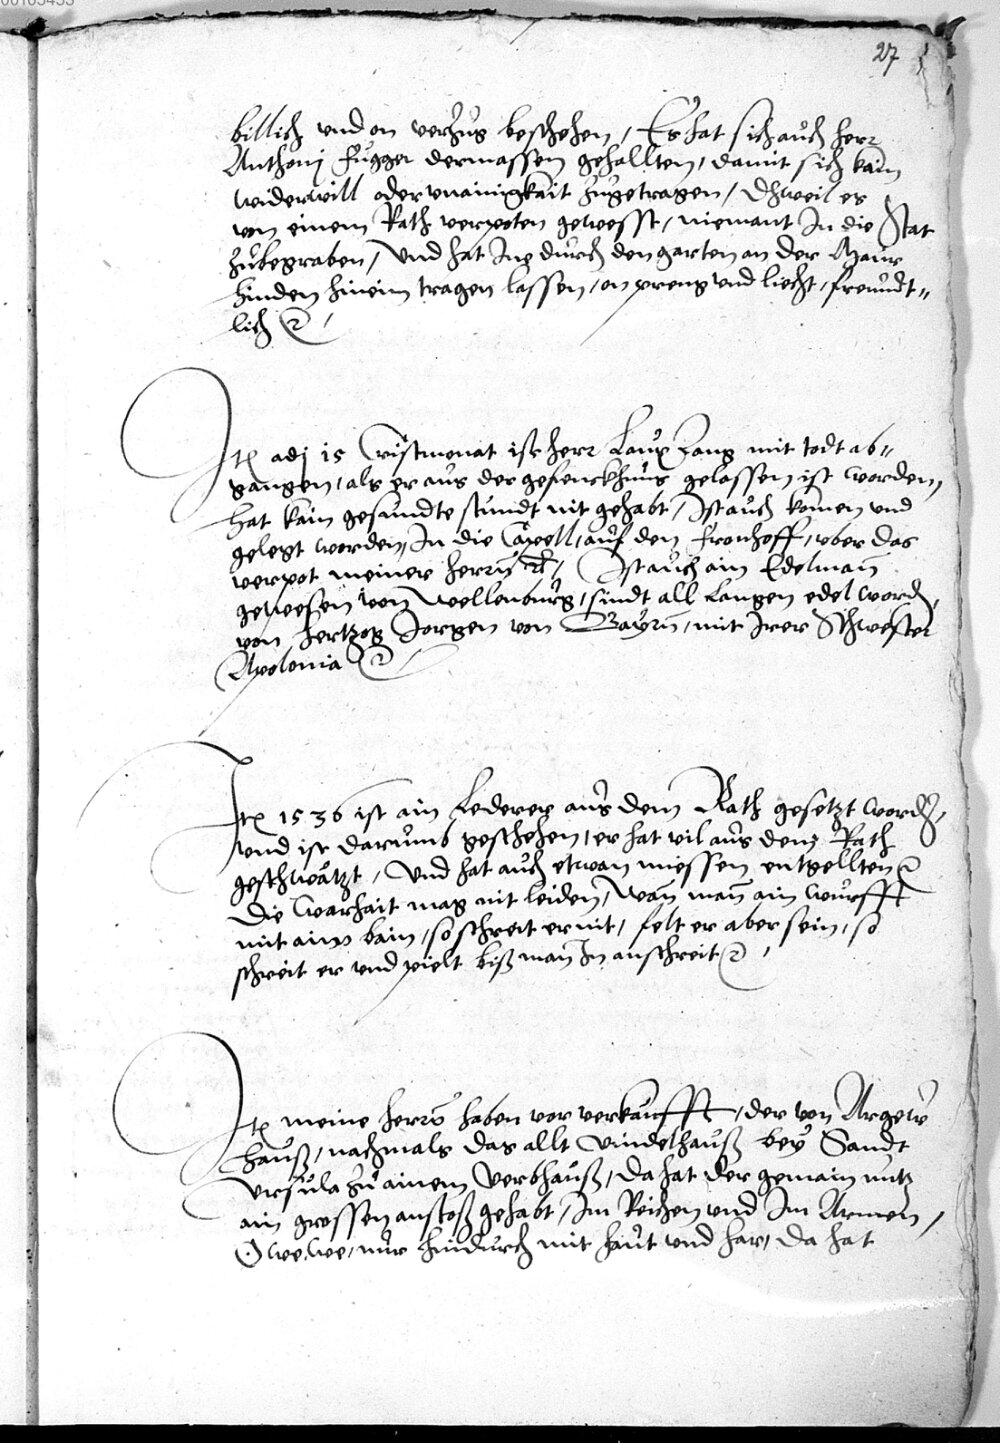 00105453
27
billich vnd on verzug beschehen / Es hat sich auch herr
Anthonj Fugger dermassen gehallten, damit sich kain
widerwill oder vnainigkait zugetragen / Dhweil es
von einem Rath verpoten gewesst, niemant In die Stat
zubegraben / Vnd hat Ine durch den garten an der Maur
hinden hinein tragen lassen, on preng vnd liecht, freundt-
lich
Itē adj 15 Cristmonat ist herr Laux Lang mit todt ab-
gangen, als er aus der gefenckhnus gelassen ist worden,
hat kain gesundte stundt nit gehabt / Ist auch komen vnd
gelegt worden, In die Capell, auf den Fronhoff, vber das
verpot meiner herrn / Ist auch ain Edelman
gewesen von Wellenburg, sindt all Langen edel word,
von Hertzog Jorgen von Bayrn, mit Irer Schwester
Apolonia
Itē 1536 ist ain Lederer aus dem Rath gesetzt word,
vnd ist darumb geschehen, er hat vil aus dem Rath
geschwätzt, Vnd hat auch etwan miessen entgellten
Die warhait mag nit leiden, Wan man ain wurfft
mit aim bain, so schreit er nit, felt er aber sein, so
schreit er vnd pielt biß man In anschreit
Itē meine herrn haben vor verkaufft, der von Argew
hauß, nachmals das allt Bindelhauß bey Sandt
Vrsula zu ainem Verbhauß, Da hat der gemain nutz
ain grossen anstoß gehabt, Im Reichen vnd Im Armen,
O we, we, nur hindurch mit haut vnd har, Da hat